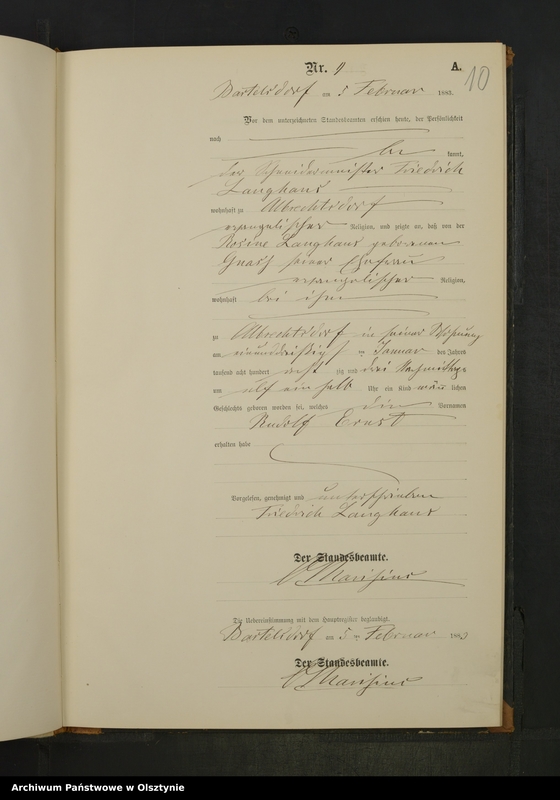 Nr. 9
A.
10
Bartelsdorf am 5 Februar 1883.
Vor dem unterzeichneten Standesbeamten erschien heute, der Persönlichkeit
nach
kannt,
der Schneidermeister Friedrich
Langhans
wohnhaft zu Albrechtsdorf
evangelischer Religion, und zeigte an, daß von der
Rosine Langhans geborenen
seiner Ehefrau
evangelischer Religion,
wohnhaft bei ihm
zu Albrechtsdorf in seiner Wohnung
am einunddreißigsten Januar des Jahres
tausend acht hundert acht zig und drei Nachmittags
um ein halb Uhr ein Kind männ lichen
Geschlechts geboren worden sei, welches die Vornamen
Rudolf Ernst
erhalten habe
Vorgelesen, genehmigt und unterschrieben
Friedrich Langhans
Der Standesbeamte.
Die Uebereinstimmung mit dem Hauptregister beglaubigt.
Bartelsdorf am 5 ten Februar 1883
Der Standesbeamte.
Archiwum Państwowe w Olsztynie